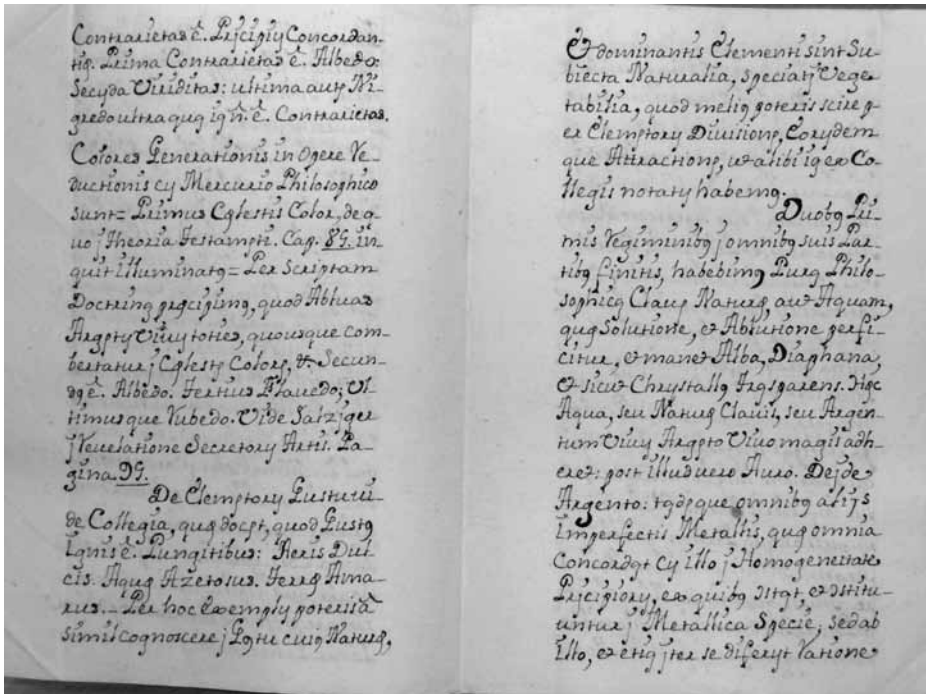 Contrarietas ẽ. Prĩcipiy Concordan-
tię. Prima Contrarietas ẽ. Albedo:
Secũda Viriditas: ultima autẽ Ni-
gredo ultra quą iq ñ. ẽ. Contrarietas.
Colores Generationis in Opere Re-
ductionis cũ Mercurio Philosophico
sunt= Primus Cęlestis Color, de q-
uo ĩ Theoria Testamẽti. Cap. 89. in-
quit illuminatꝰ= Per Scriptam
Doctriną pręcipimꝰ, quod Abluas
Argẽtũ Vivũ toties, quousque com-
bertatur ĩ Cęlestẽ Colorẽ, &. Secun-
dꝰ ẽ. Albedo. Tertius Flavedo; Ul-
timusque Rubedo. Vide Salziger
ĩ Revelatione Secretorũ Artis. Pa-
gina. 99.
De Elemẽtorũ Gustu vi-
de Collegia, quę docẽt, quod Gustꝰ
Ignis ẽ. Pungitibus: Aeris Dul-
cis. Aquę Azetosus. Terrę Ama-
rus. - Per hoc Exemplũ poteris ã
simil cognoscere ĩ Gẽtu cuiꝰ Naturę,
Et dominantis Elementi sint Su-
biecta Naturalia, speciatĩ Vege-
tabilia, quod meliꝰ poteris scire p-
er Elemẽtorũ Divisionẽ, Eorũdem
que Attractionẽ, ut alibi iq ex Co-
llegis notatũ habemꝰ.
Duobꝰ Pri-
mis Regiminibꝰ ĩ omnibꝰ suis Par-
tibꝰ finitis, habebimꝰ Purą Philo-
sophicą Clavẽ Naturę, aut Aquam,
quę Solutione, et Ablutione perfi-
citur, et manet Alba, Diaphana,
Et sicut Chrystallꝰ Trąsparens. Hęc
Aqua, seu Naturę Clavis, seu Argen-
tum Vivũ Argẽto Vivo magis adh-
eret: post illud vero Auro. Deĩde
Argento: tądẽque omnibꝰ alijs
Imperfectis Metallis, quę omnia
Concordąt cũ illo ĩ Homogeneitate
Prĩcipiorũ, ex quibꝰ
untur ĩ Metallica Specie; sed ab
illo, et etią ĩter se diferũt Ratione